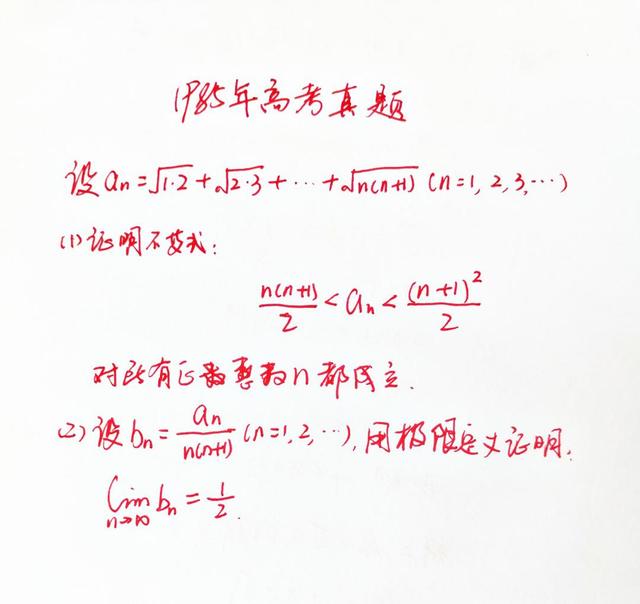 1985年高考真题
设 aₙ=√1·2+√2·3+⋯+√n(n+1) (n=1,2,3,⋯)
(1)证明不等式:
n(n+1)/2 < aₙ < (n+1)²/2
对所有正整数n都成立.
(2)设 bₙ = aₙ/n(n+1) (n=1,2,⋯),用极限定义证明:
lim n→∞ bₙ = 1/2.